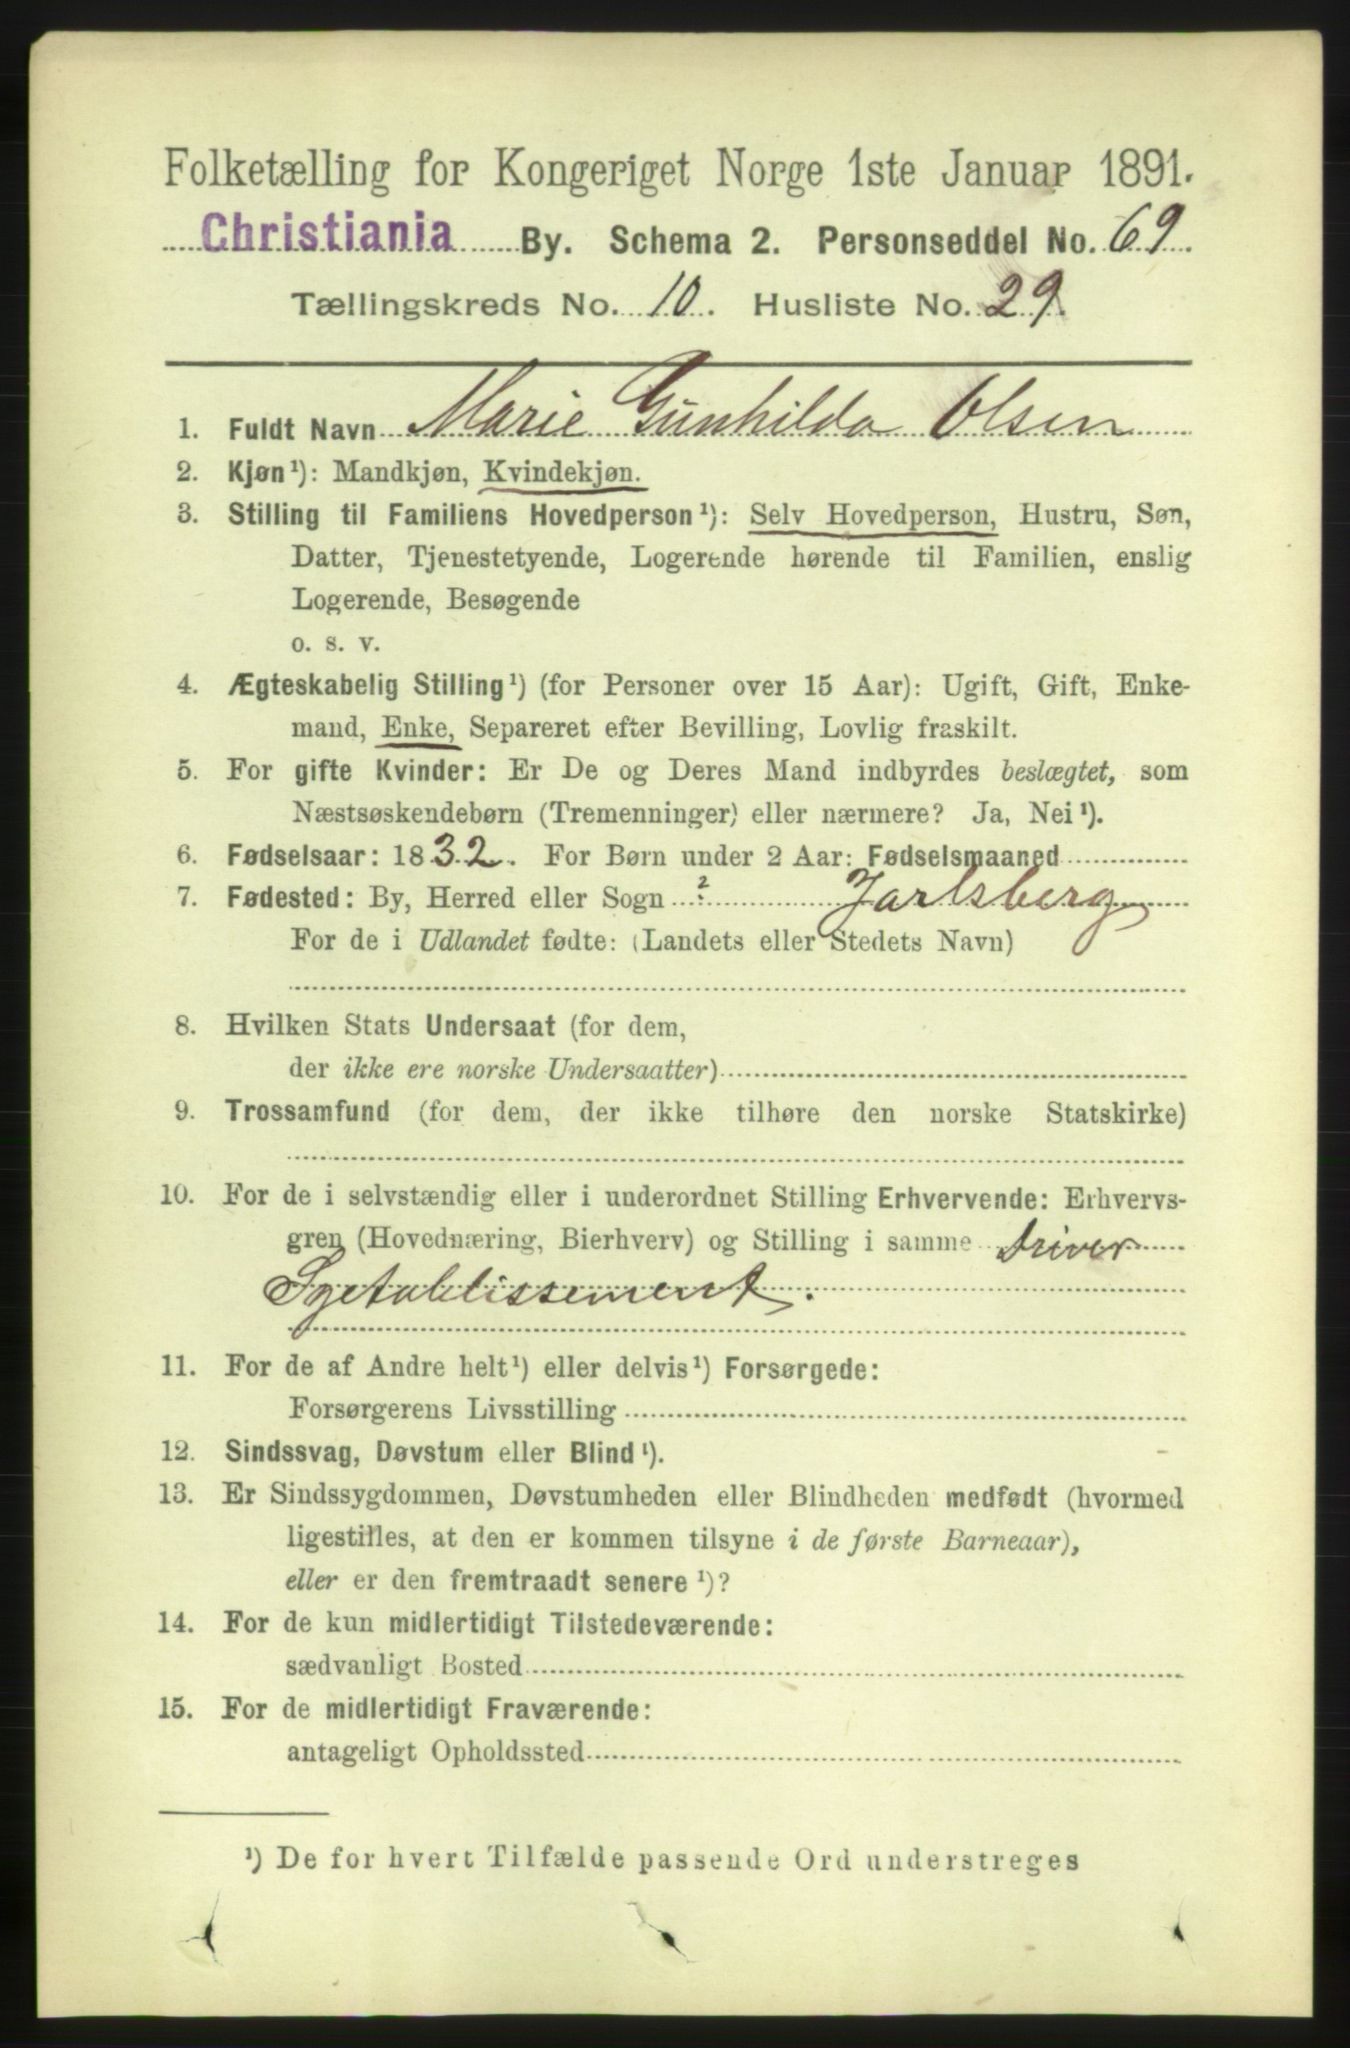 Folketælling for Kongeriget Norge 1ste Januar 1891.
Christiania By. Schema 2. Personseddel No. 69.
Tællingskreds No. 10. Husliste No. 29.
1. Fuldt Navn Marie Gunhilda Olsen
2. Kjøn¹): Mandkjøn, Kvindekjøn.
3. Stilling til Familiens Hovedperson¹): Selv Hovedperson, Hustru, Søn,
Datter, Tjenestetyende, Logerende hørende til Familien, enslig
Logerende, Besøgende
o. s. v.
4. Ægteskabelig Stilling¹) (for Personer over 15 Aar): Ugift, Gift, Enke-
mand, Enke, Separeret efter Bevilling, Lovlig fraskilt.
5. For gifte Kvinder: Er De og Deres Mand indbyrdes beslægtet, som
Næstsøskendebørn (Tremenninger) eller nærmere? Ja, Nei¹).
6. Fødselsaar: 1832. For Børn under 2 Aar: Fødselsmaaned
7. Fødested: By, Herred eller Sogn ? Jarlsberg
For de i Udlandet fødte: (Landets eller Stedets Navn)
8. Hvilken Stats Undersaat (for dem,
der ikke ere norske Undersaatter)
9. Trossamfund (for dem, der ikke tilhøre den norske Statskirke)
10. For de i selvstændig eller i underordnet Stilling Erhvervende: Erhvervs-
gren (Hovednæring, Bierhverv) og Stilling i samme Driver
Syetablissement.
11. For de af Andre helt¹) eller delvis¹) Forsørgede:
Forsørgerens Livsstilling
12. Sindssvag, Døvstum eller Blind¹).
13. Er Sindssygdommen, Døvstumheden eller Blindheden medfødt (hvormed
ligestilles, at den er kommen tilsyne i de første Barneaar),
eller er den fremtraadt senere¹)?
14. For de kun midlertidigt Tilstedeværende:
sædvanligt Bosted
15. For de midlertidigt Fraværende:
antageligt Opholdssted
¹) De for hvert Tilfælde passende Ord understreges